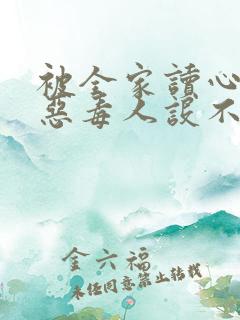 被全家讀心
惡毒人設不
金六福
未经同意禁止转载